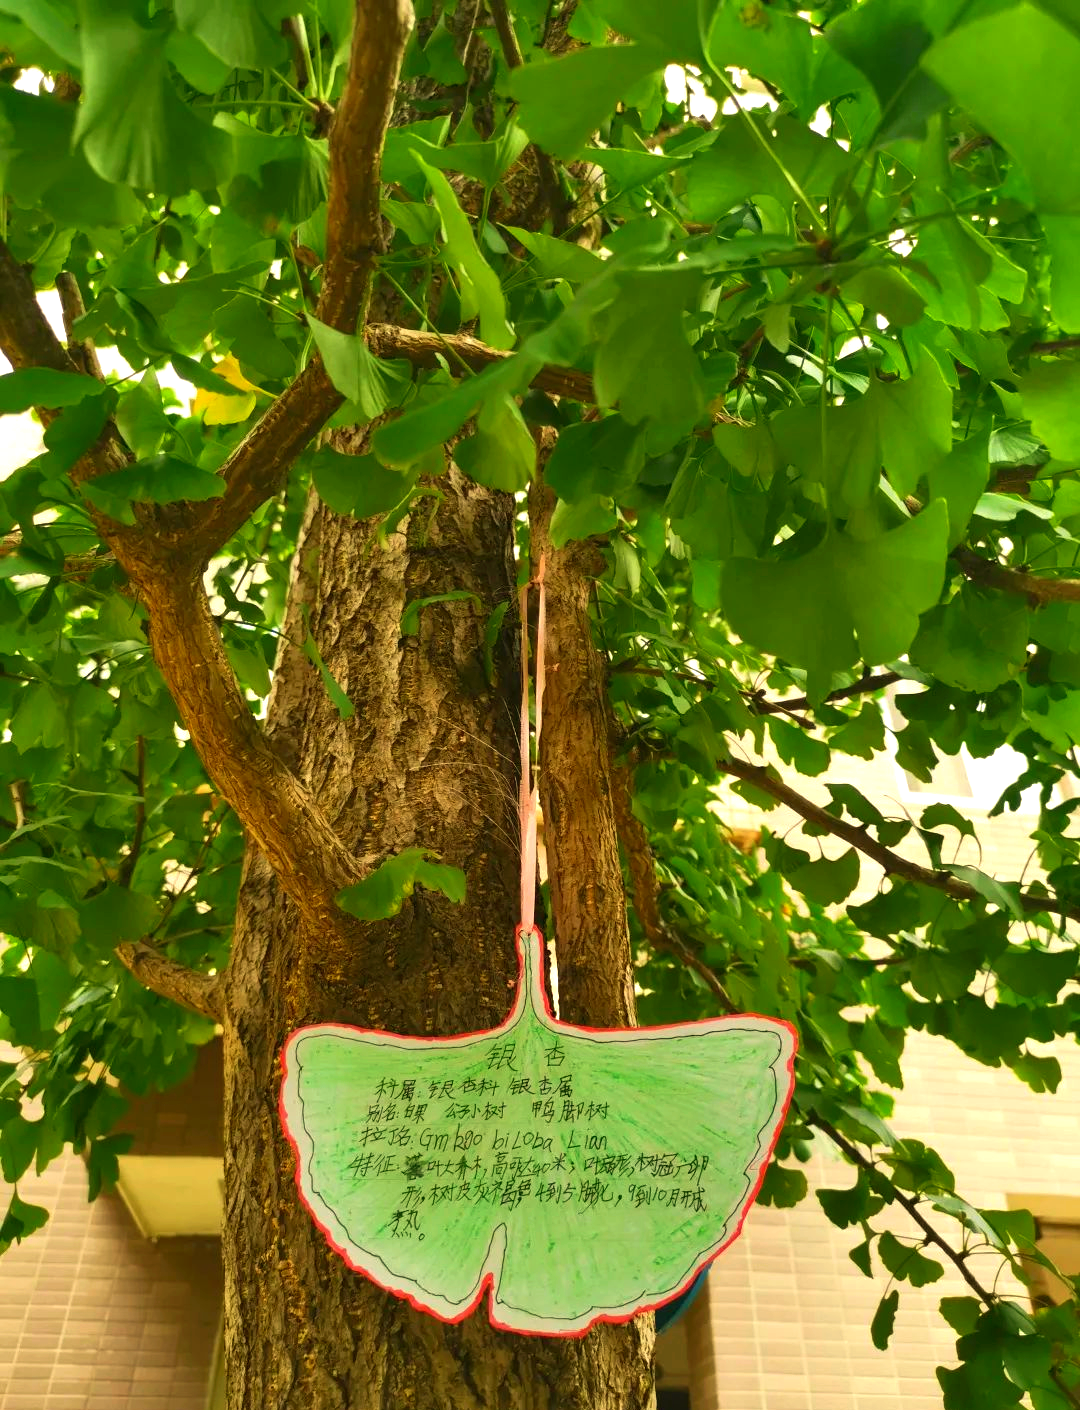 银 杏
科属:银杏科 银杏属
别名:白果 公孙树 鸭脚树
拉丁名:Gmkgo biLoba Lian
特征:落叶大乔木,高可达40米;叶扇形,树冠一卵
形,树皮灰褐色,4到5月开花,9到10月开成
熟。